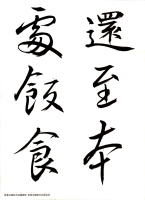 還至本
處飯食